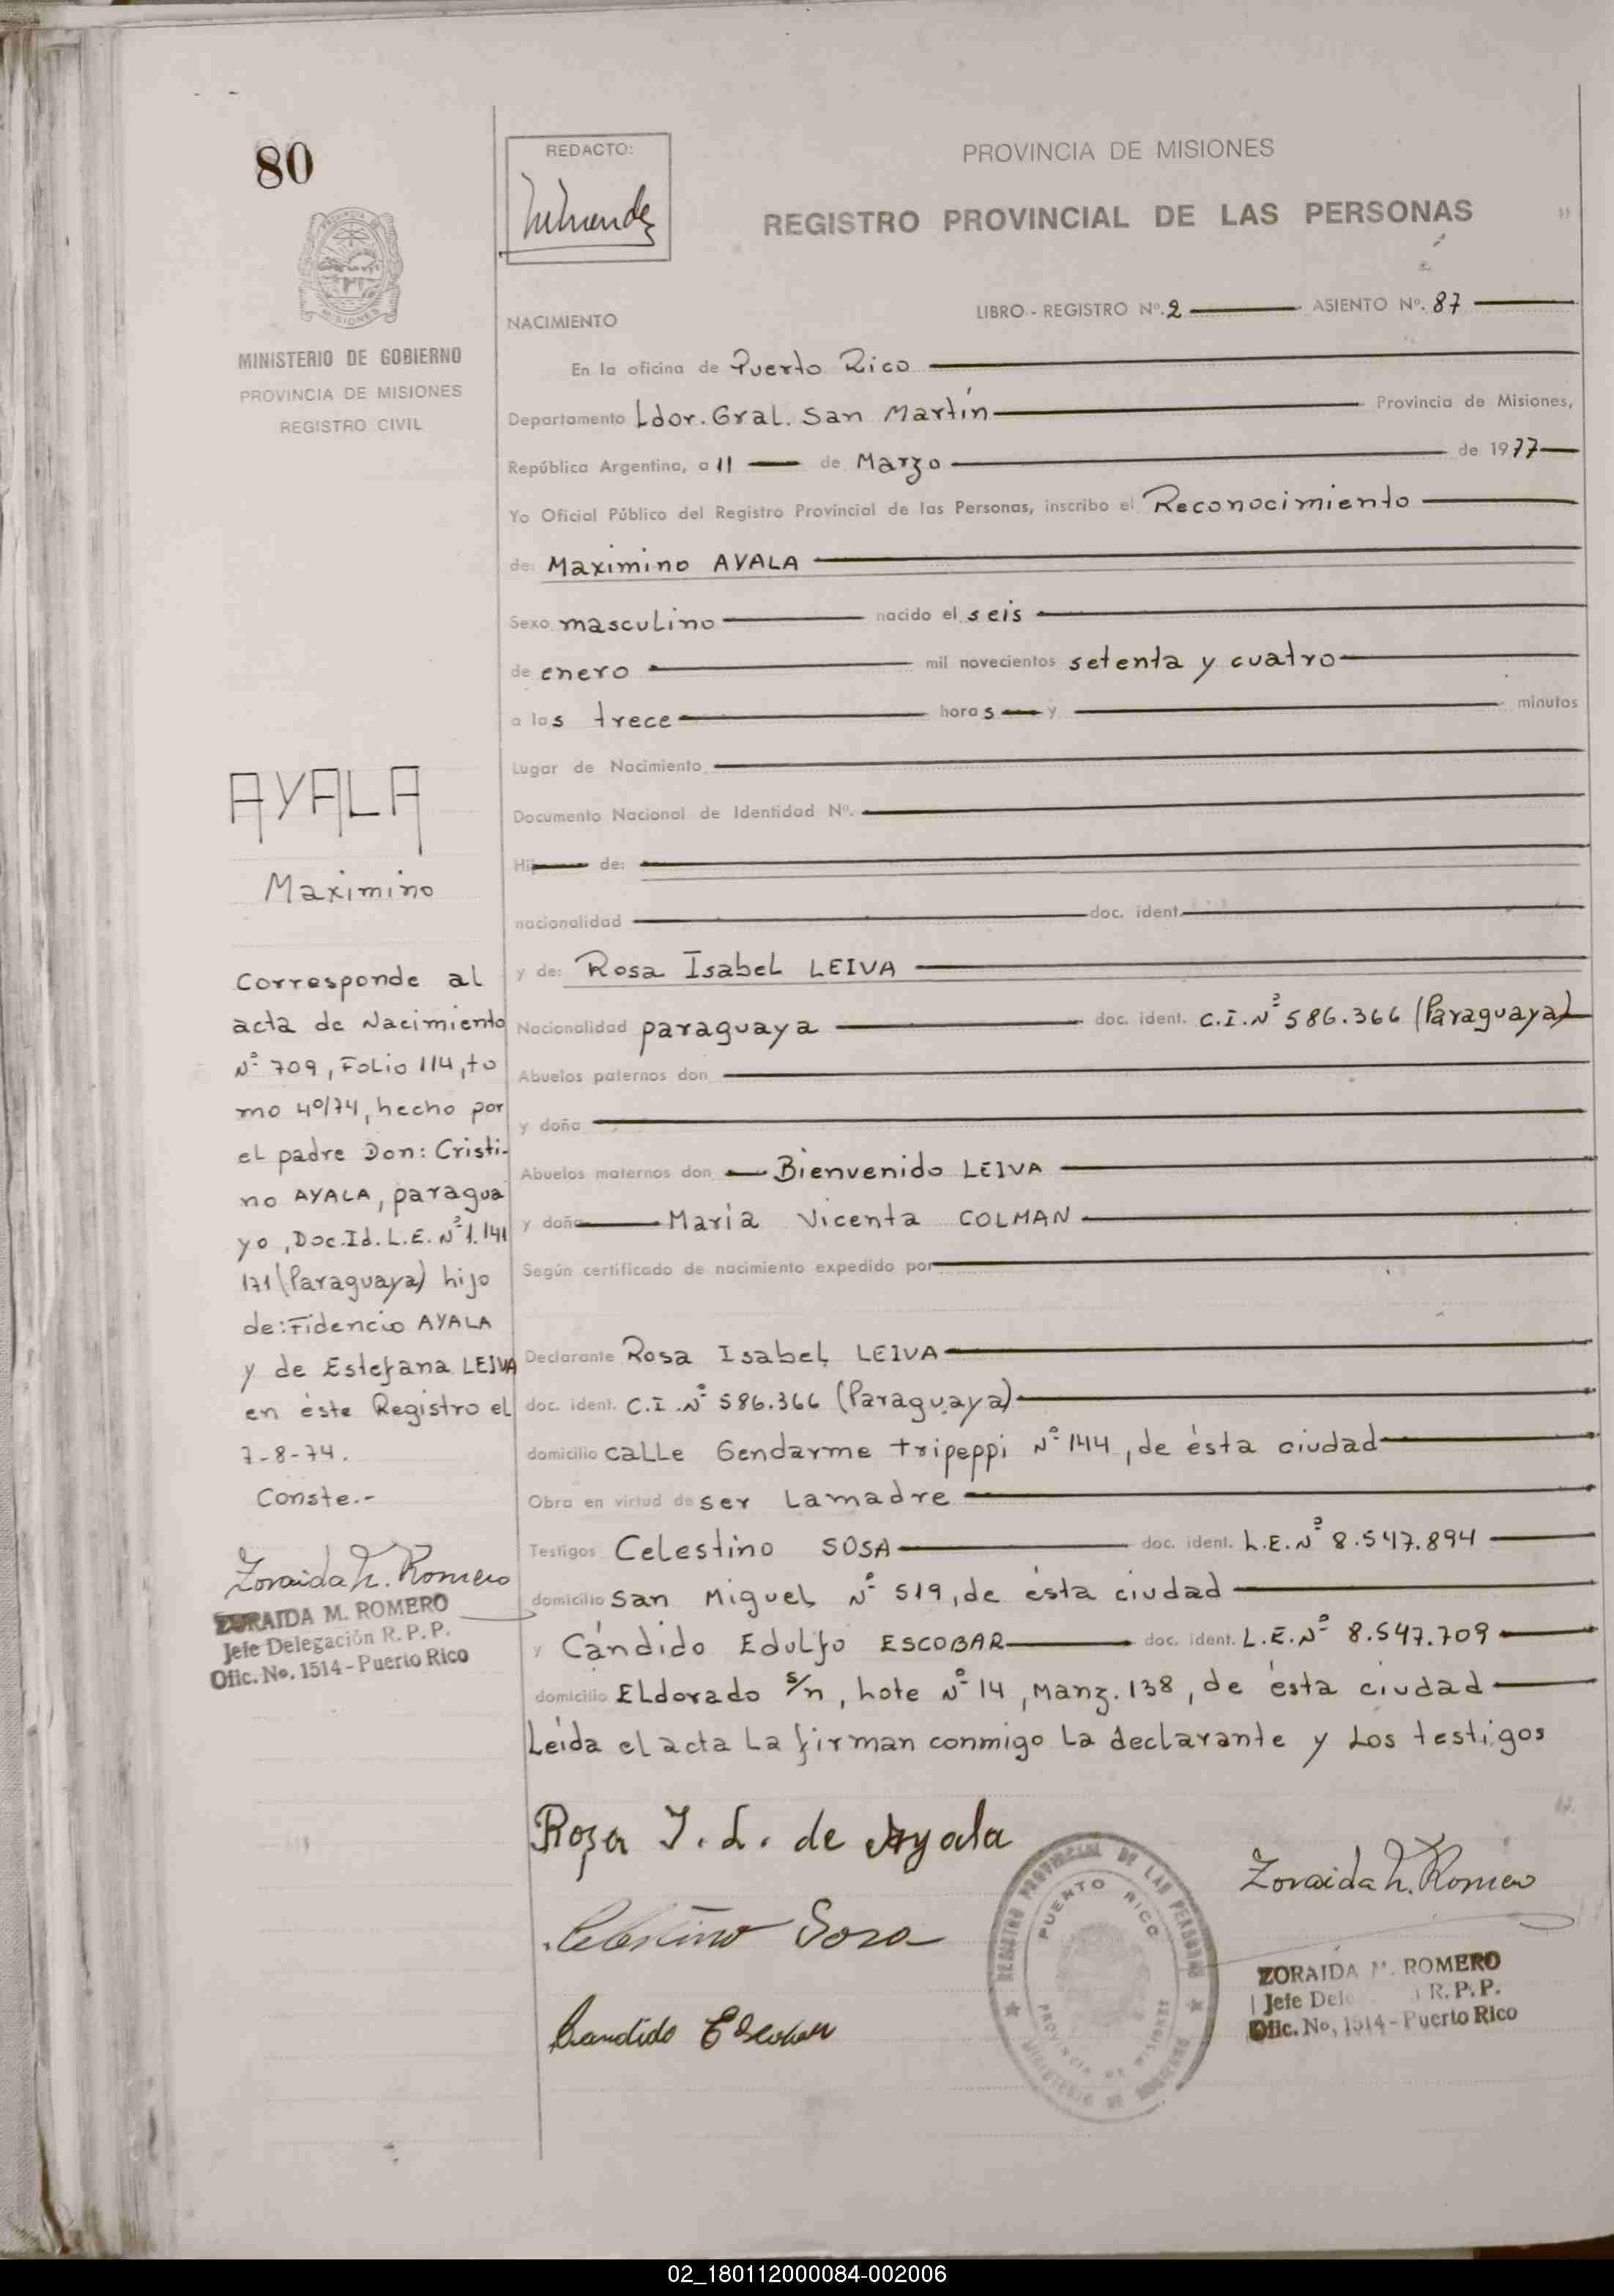 80
REDACTO:
PROVINCIA DE MISIONES
REGISTRO PROVINCIAL DE LAS PERSONAS
MISIONES
MINISTERIO DE GOBIERNO
PROVINCIA DE MISIONES
REGISTRO CIVIL
NACIMIENTO
LIBRO - REGISTRO Nº. 2 ASIENTO Nº. 87
En la oficina de Puerto Rico
Departamento Ldor. Gral. San Martín Provincia de Misiones,
República Argentina, a 11 de Marzo de 1977
Yo Oficial Público del Registro Provincial de las Personas, inscribo el Reconocimiento
de: Maximino AYALA
Sexo masculino nacido el seis
de enero mil novecientos setenta y cuatro
a las trece horas y minutos
Lugar de Nacimiento
Documento Nacional de Identidad Nº.
Hij de:
nacionalidad doc. ident.
y de: Rosa Isabel LEIVA
Nacionalidad paraguaya doc. ident. C.I. Nº 586.366 (Paraguaya)
Abuelos paternos don
y doña
Abuelos maternos don Bienvenido LEIVA
y doña María Vicenta COLMAN
Según certificado de nacimiento expedido por
Declarante Rosa Isabel LEIVA
doc. ident. C.I. Nº 586.366 (Paraguaya)
domicilio calle Gendarme tripeppi Nº 144, de ésta ciudad
Obra en virtud de ser la madre
Testigos Celestino SOSA doc. ident. L.E. Nº 8.547.894
domicilio San Miguel Nº 519, de ésta ciudad
y Cándido Edulfo ESCOBAR doc. ident. L.E. Nº 8.547.709
domicilio Eldorado s/n, Lote Nº 14, Manz. 138, de ésta ciudad
Leída el acta la firman conmigo la declarante y los testigos
AYALA
Maximino
Corresponde al
acta de Nacimiento
Nº 709, Folio 114, to
mo 4º/74, hecho por
el padre Don: Cristi-
no AYALA, paragua
yo, Doc. Id. L.E. Nº 1.141
171 (Paraguaya) hijo
de: Fidencio AYALA
y de Estefana LEIVA
en éste Registro el
7-8-74.
Conste.-
Zoraida M. Romero
ZORAIDA M. ROMERO
Jefe Delegación R. P. P.
Ofic. No. 1514 - Puerto Rico
Rosa I. L. de Ayala
Celestino Sosa
Candido Escobar
REGISTRO PROVINCIAL DE LAS PERSONAS
PUERTO RICO
PROVINCIA DE MISIONES
MINISTERIO DE GOBIERNO
Zoraida M. Romero
ZORAIDA M. ROMERO
Jefe Dele R. P. P.
Ofic. No, 1514 - Puerto Rico
02_180112000084-002006